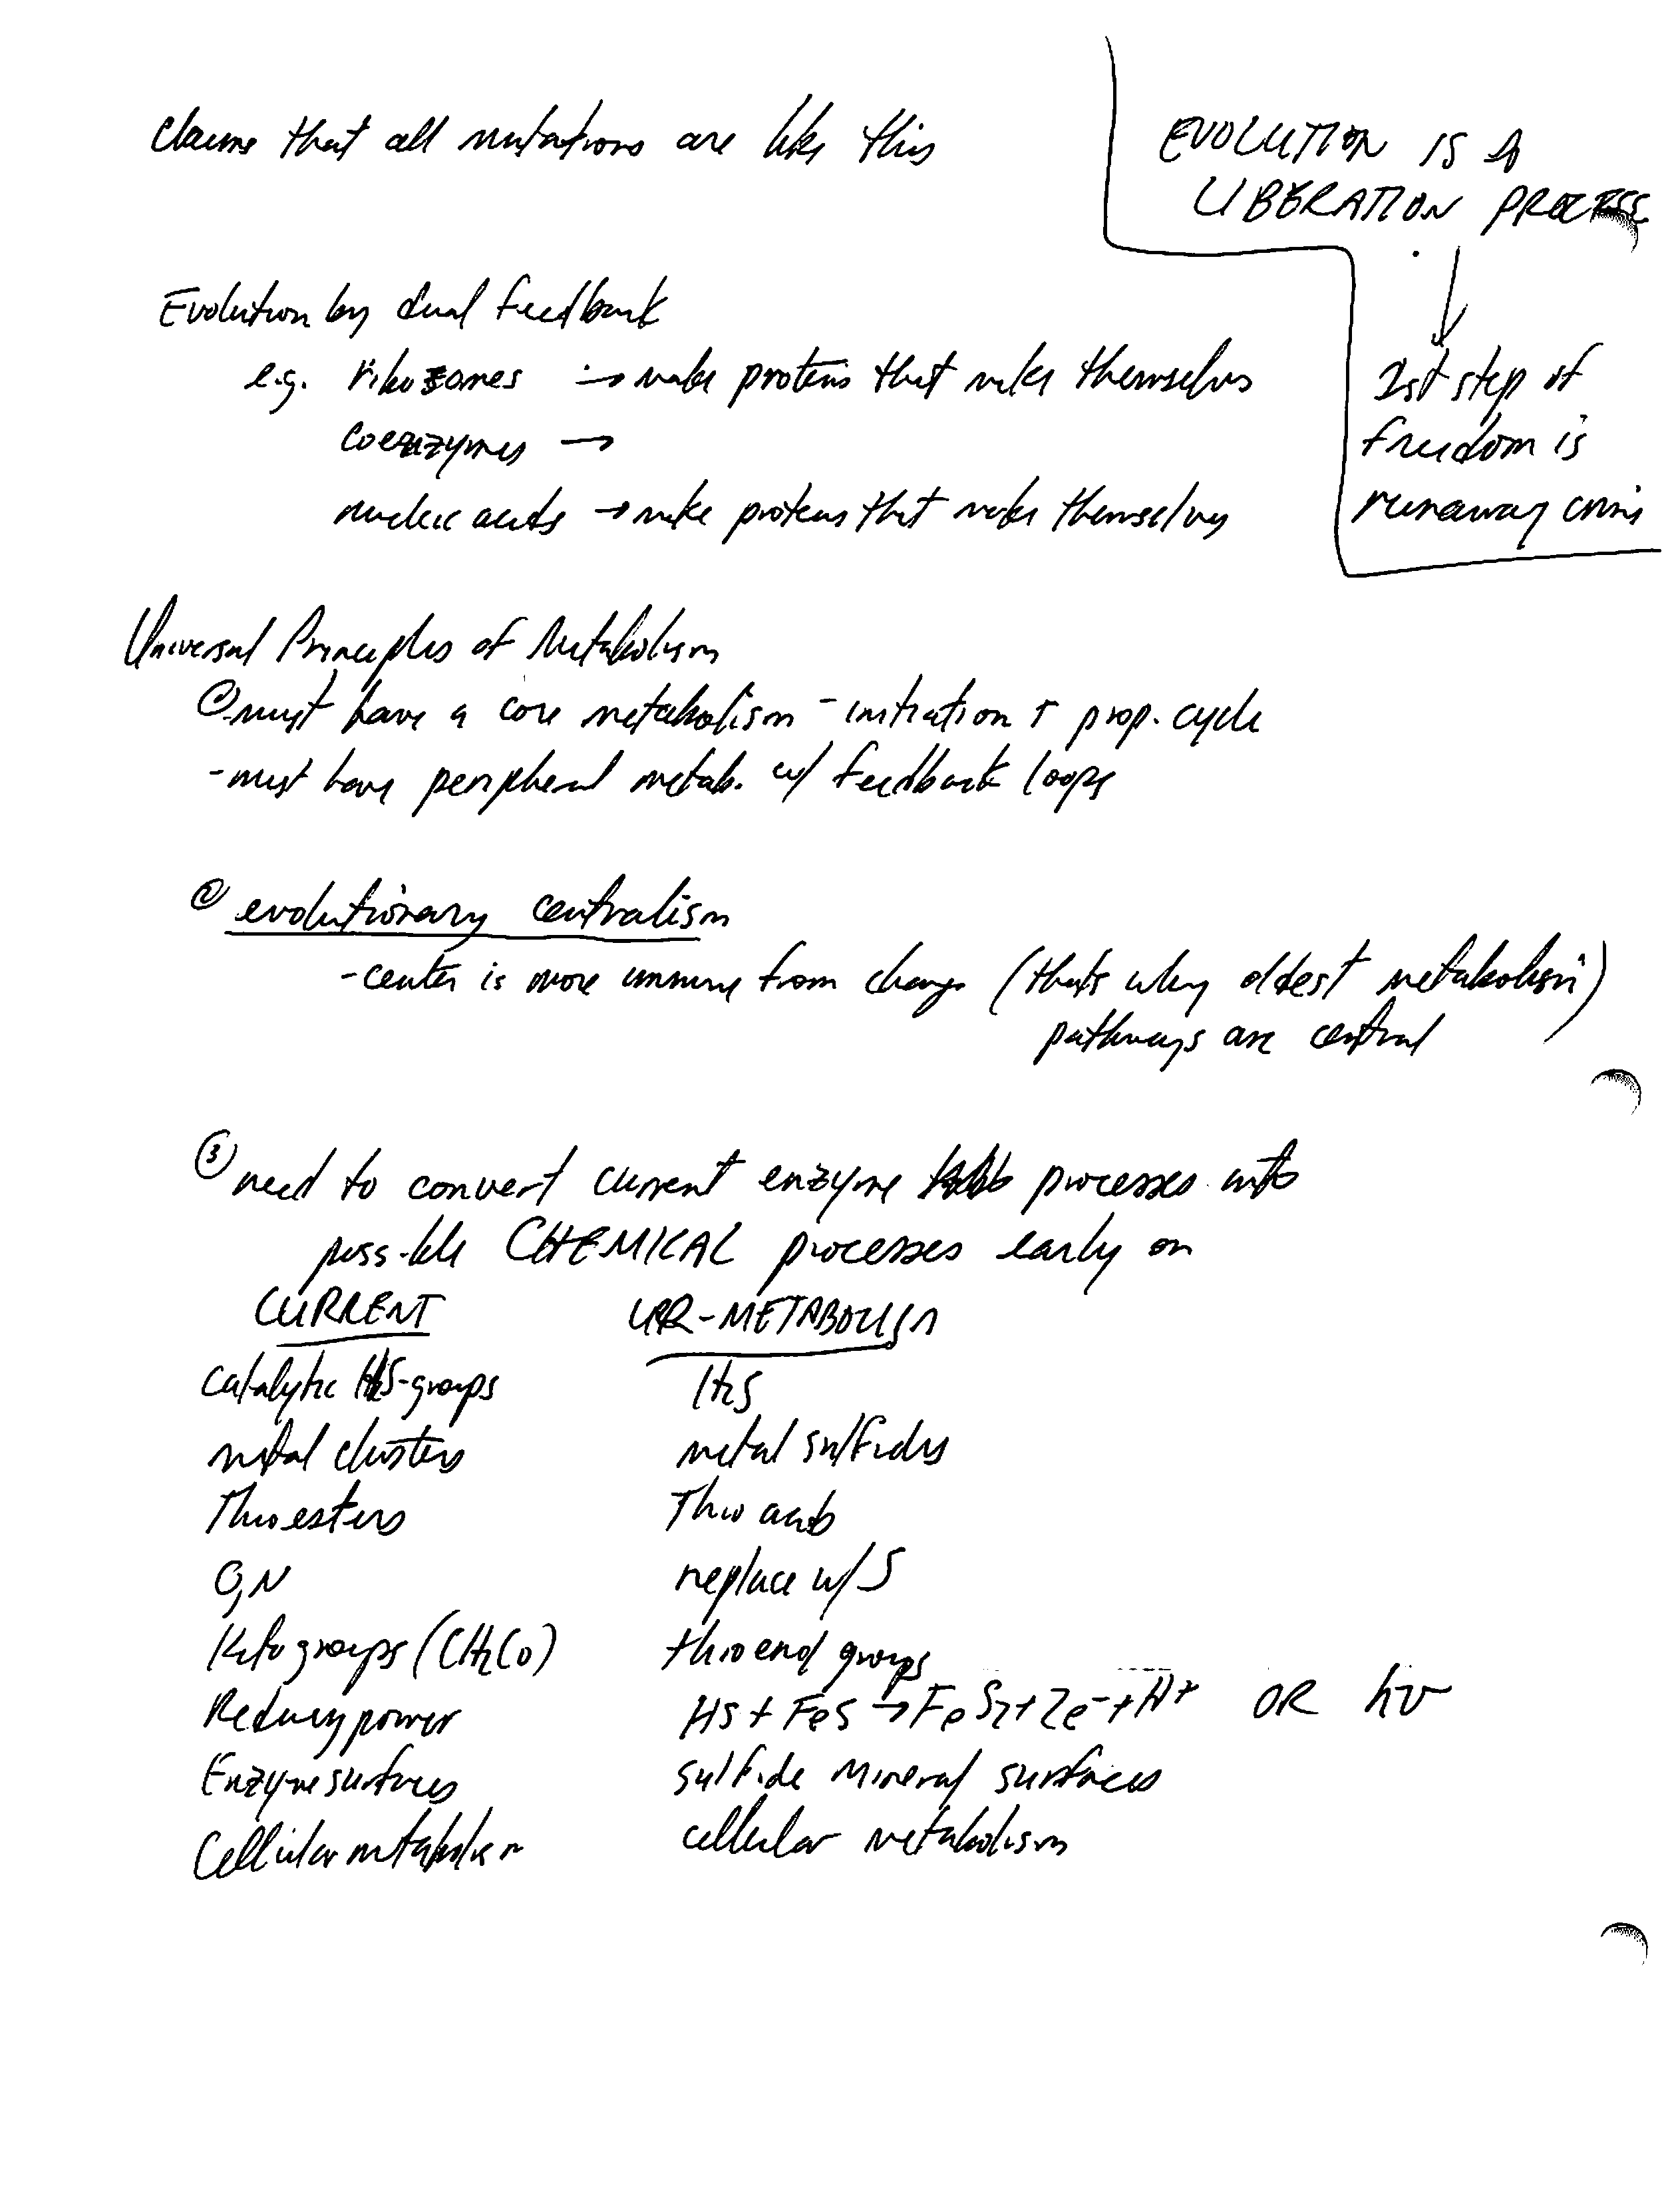 Claims that all mutations are like this
EVOLUTION IS A
LIBERATION PROCESS
1st step of
freedom is
runaway
Evolution by dual feedback
e.g. ribozomes → make proteins that make themselves
coenzymes →
nucleic acids → make proteins that make themselves
Universal Principles of Metabolism
① must have a core metabolism - initiation + prop. cycle
- must have peripheral metab. w/ feedback loops
② evolutionary centralism
- center is more immune from change (that's why oldest metabolism)
pathways are central
③ need to convert current enzyme processes into
possible CHEMICAL processes early on
CURRENT UR-METABOLISM
Catalytic HS-groups H2S
metal clusters metal sulfides
Thioesters Thio acids
O, N replace w/ S
Keto groups (CH2CO) thio end groups
Reducing power HS + FeS → FeS2 + 2e- + H+ OR hν
Enzyme surfaces sulfide mineral surfaces
Cellular metabolism cellular metabolism